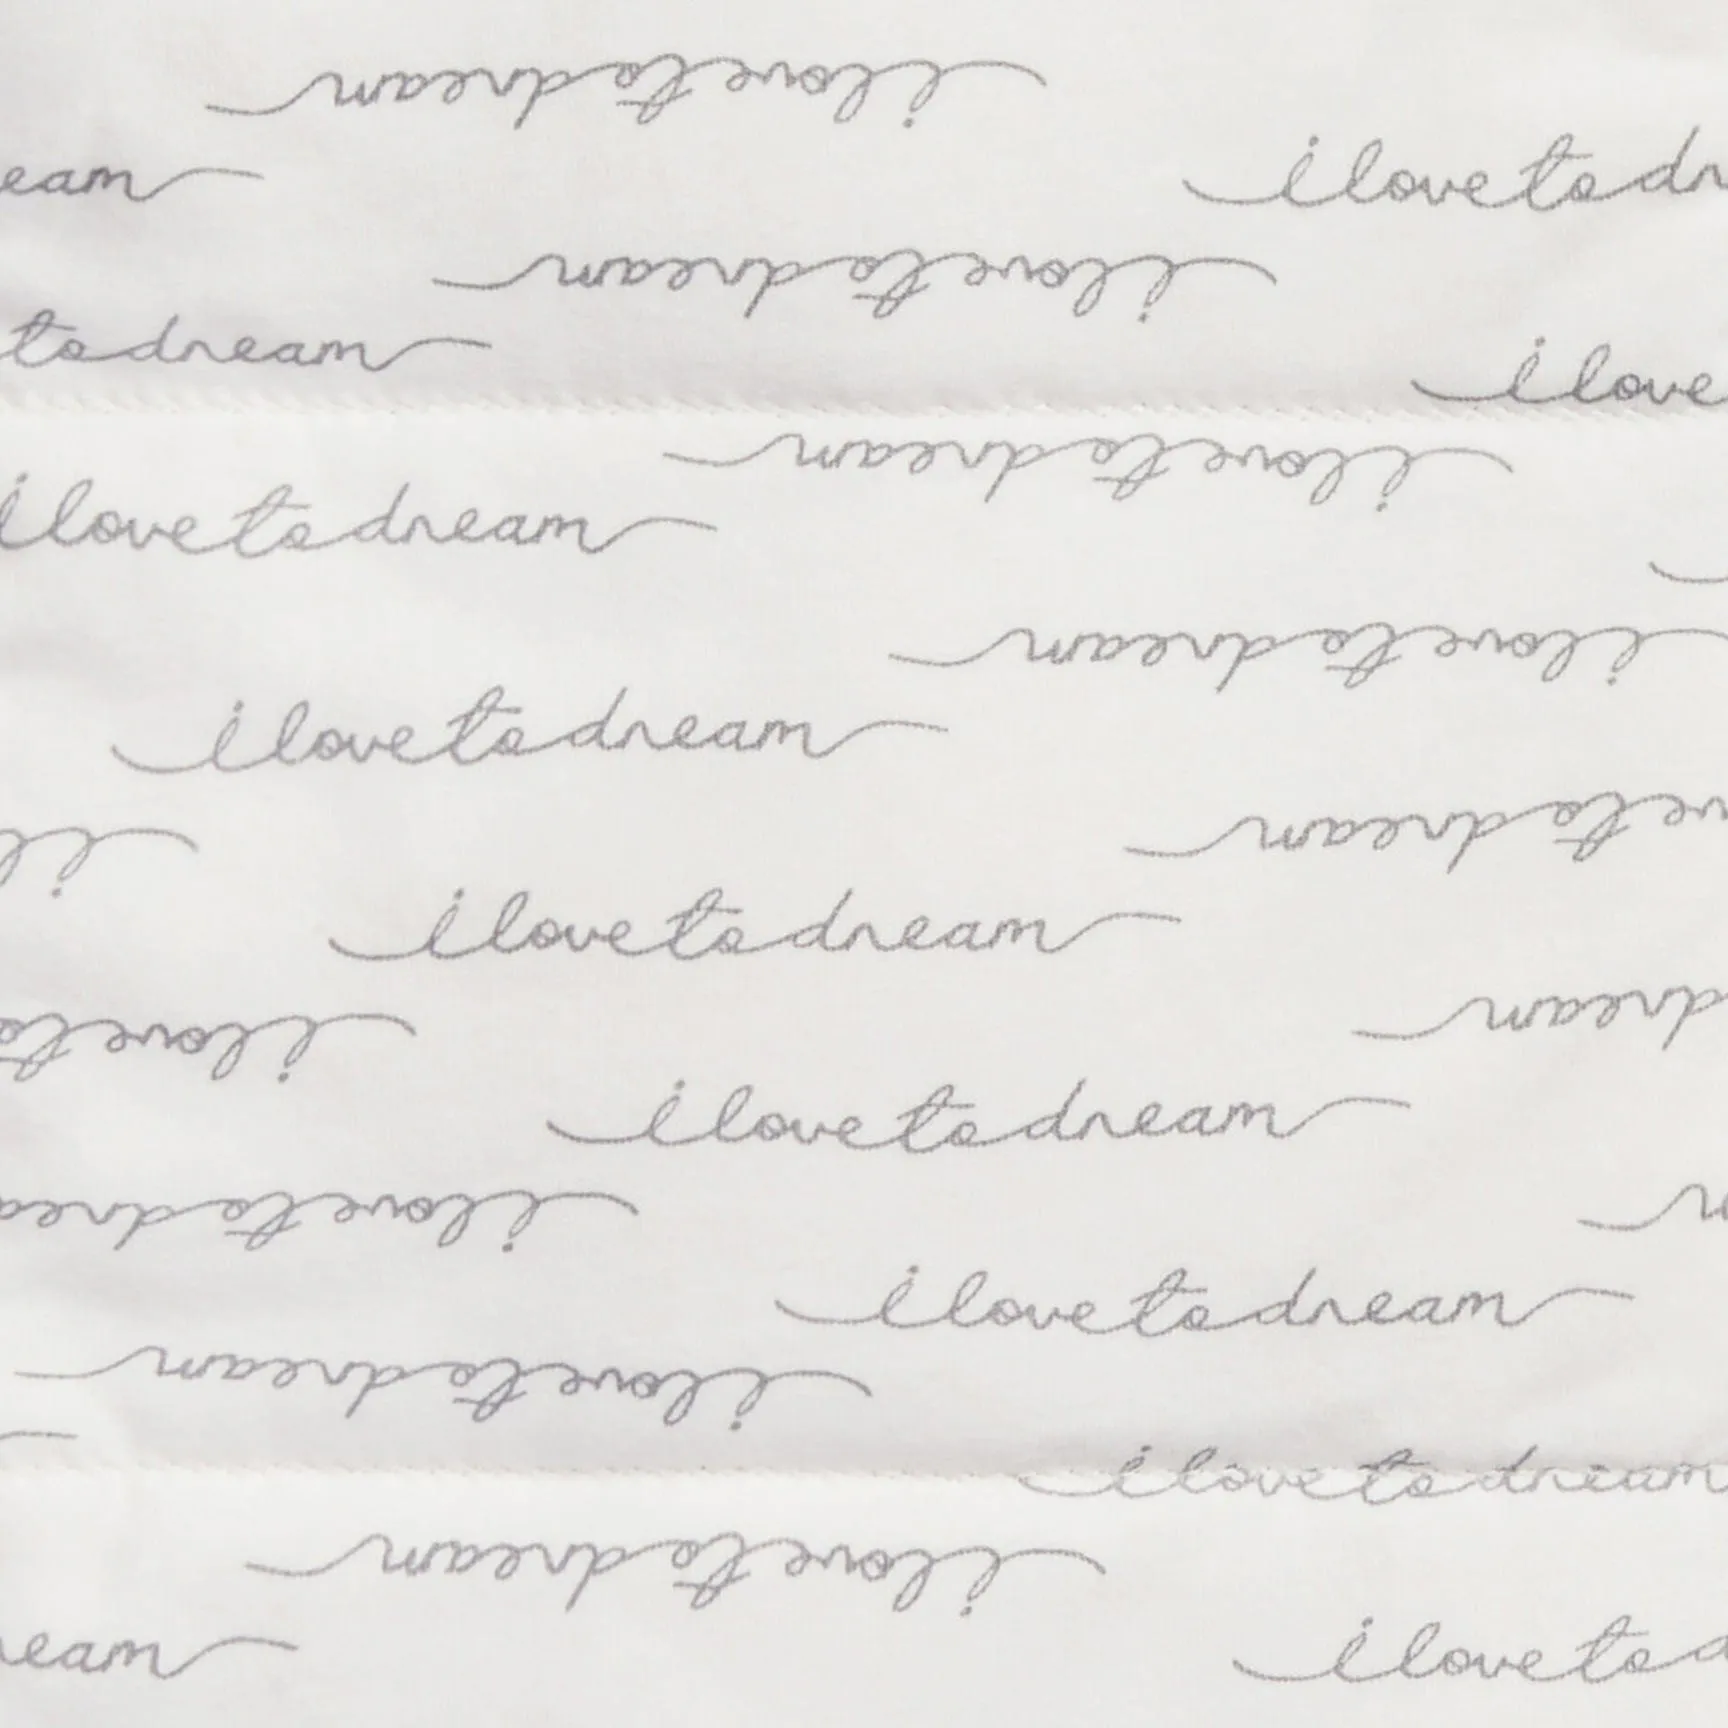 i love to dream
eam
i love to dr
i love to dream
to dream
i love
i love to dream
i love to dream
i love to dream
i love to dream
ve to dream
i l
i love to dream
dream
i love to
i love to dream
i love to drea
m
i love to dream
i love to dream
i love to dream
i love to dream
eam
i love to d